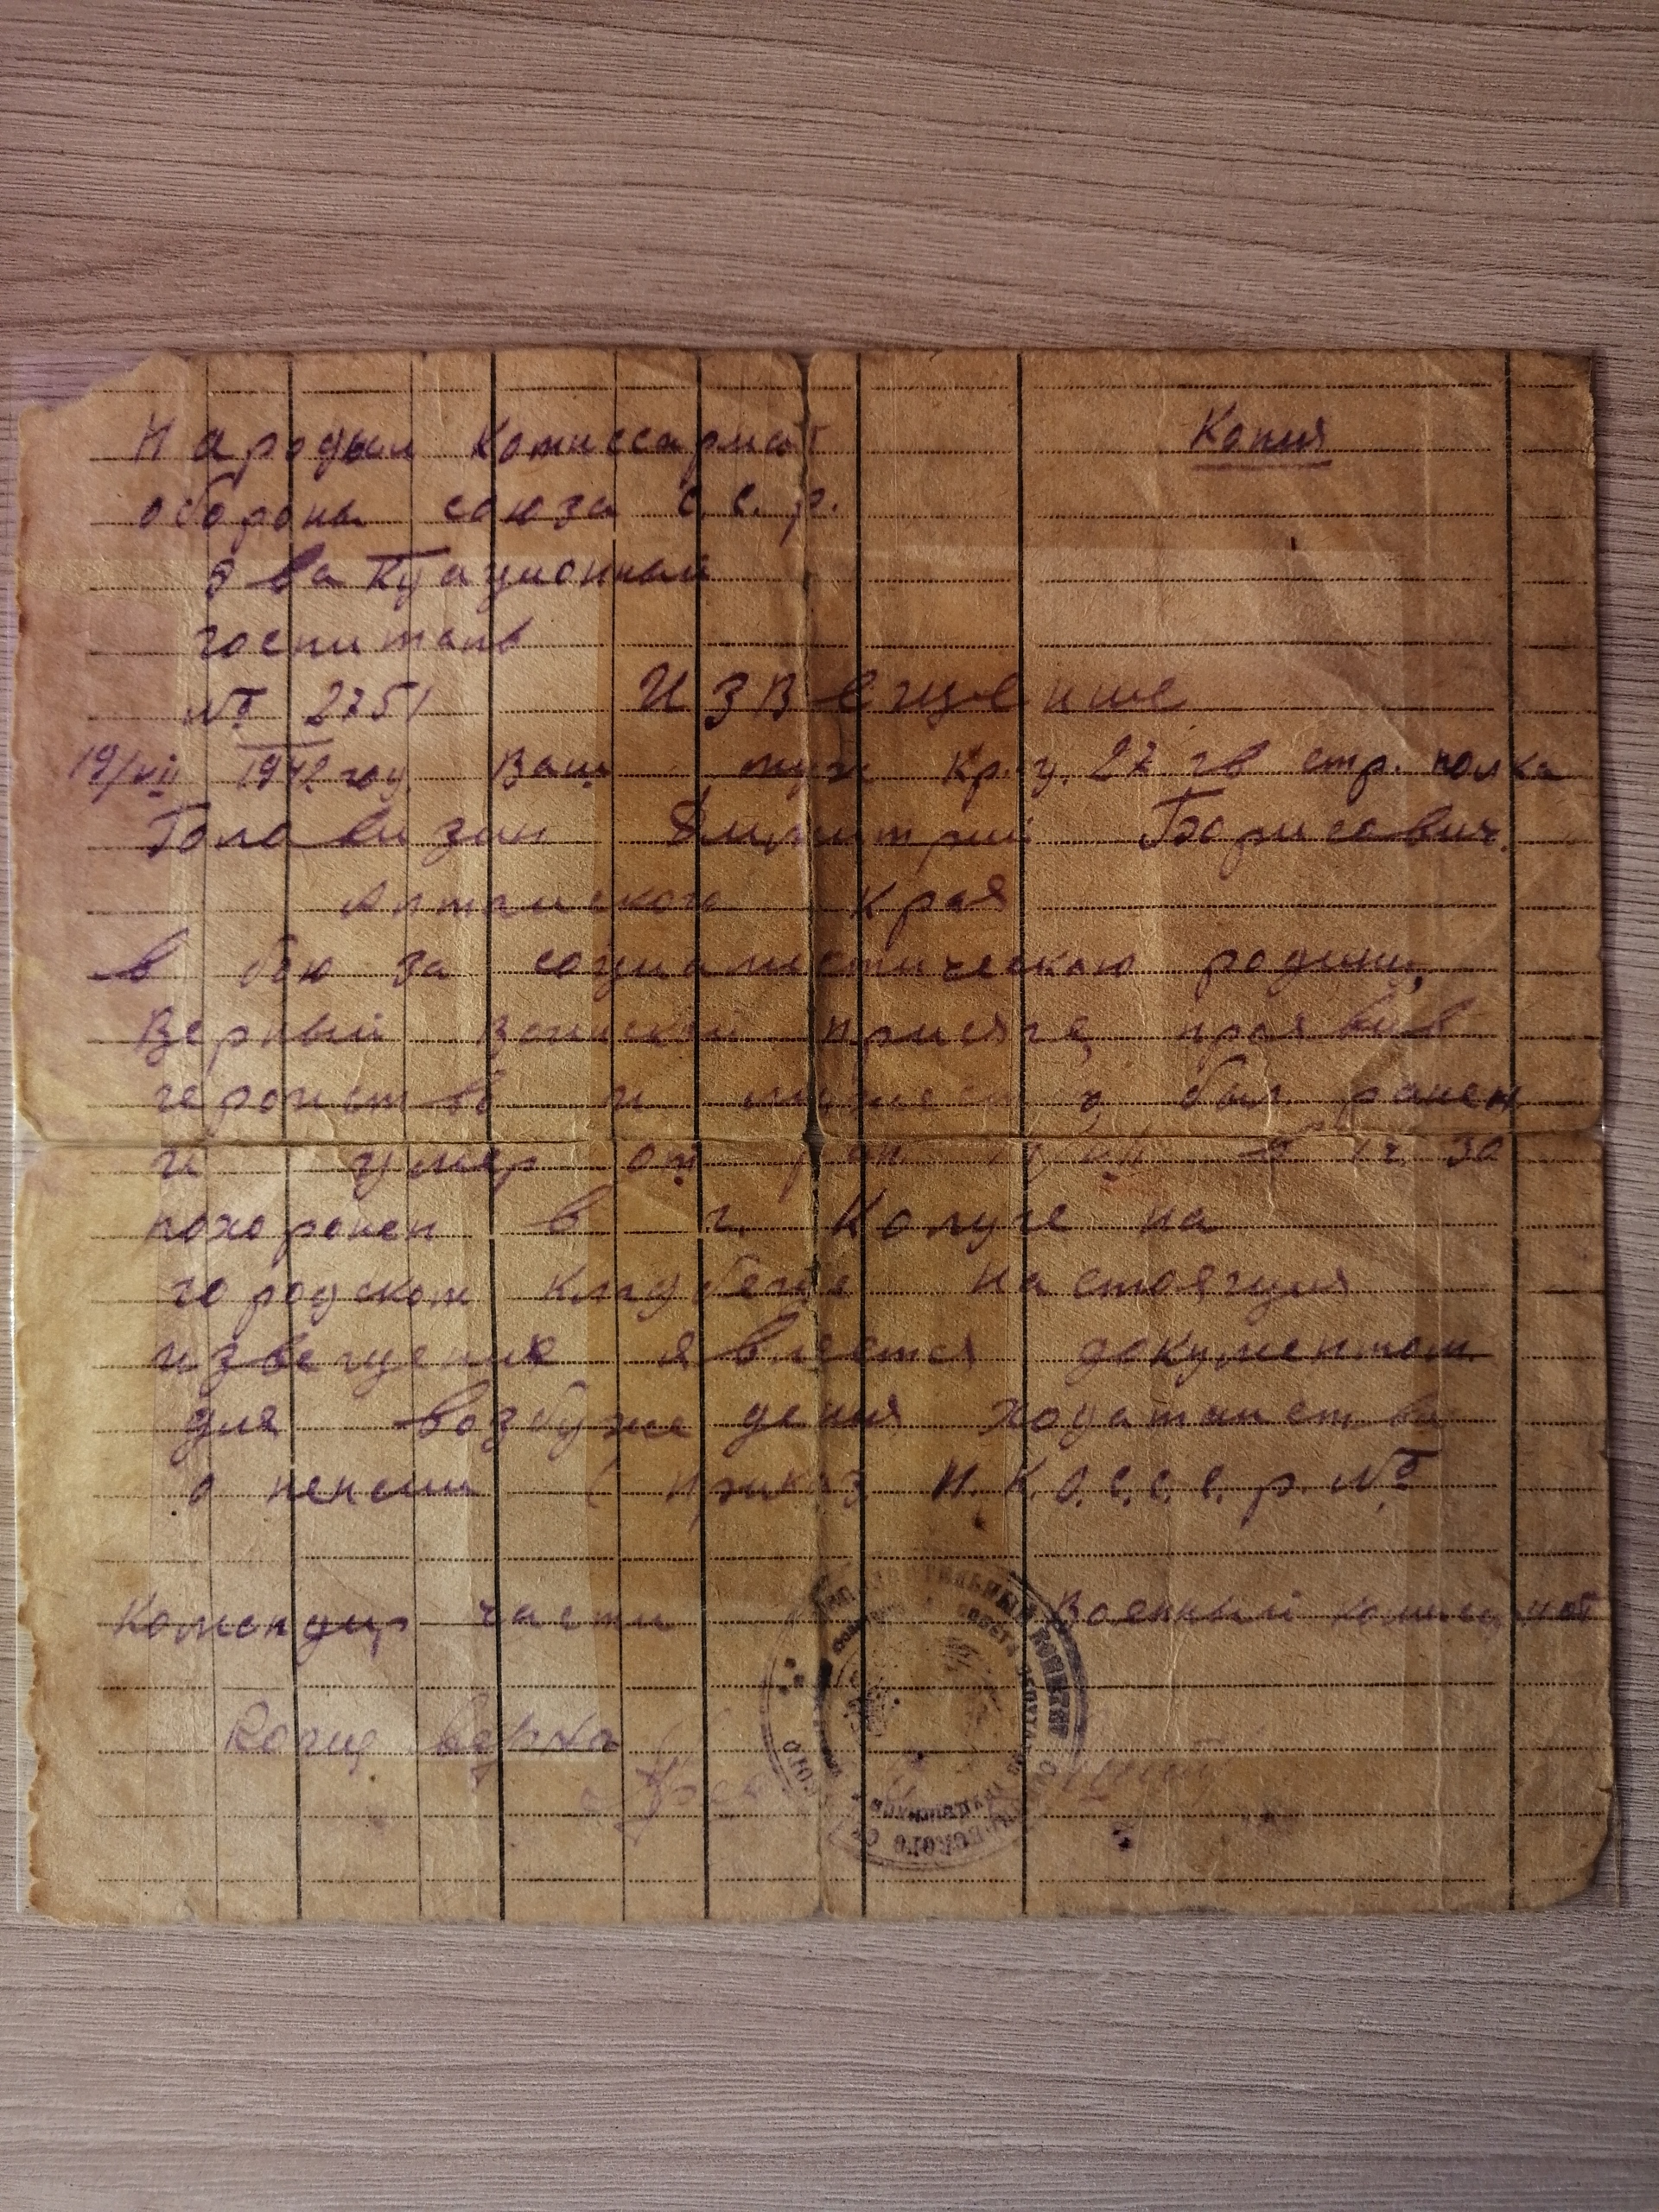 Народый Комиссариат Копия
обороны союза С.С.Р.
Эвакуационный
госпиталь
№ 2751 Извещение
19/VII 1942 год. Ваш муж кр-ц. 27 гв стр. полка
Голавизин Дмитрий Борисович.
Алтайского края
в бою за социалистическою родину,
верный воинской присяге, проявив
геройство и мужество был ранен
и умер от ран
похоронен в г. Калуге на
городском кладбеще Настоящия
извещение является документом
для возбуждения ходатайства
о пенсии (приказ Н.К.О.С.С.С.р. №
Командир части Военный
Копия верна
ИСПОЛНИТЕЛЬНЫЙ КОМИТЕТ
СОВЕТА ДЕПУТАТОВ